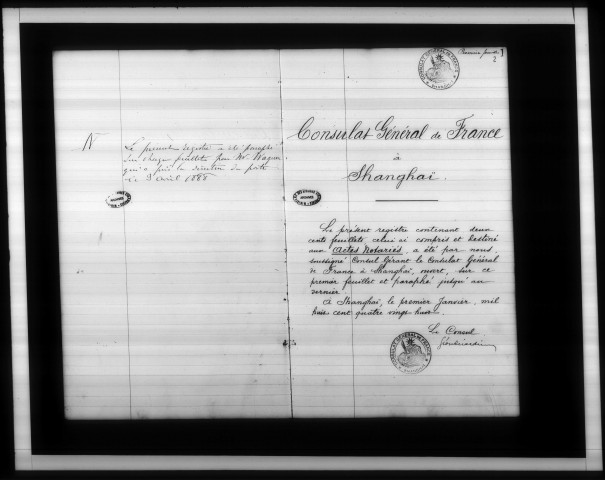 N
Le présent registre a été paraphé
par Mr Wagner
qui a pris la direction du poste
le 3 Avril 1888
Premier feuillet
1
2
CONSULAT GÉNÉRAL DE FRANCE
Consulat Général de France
à
Shanghaï.
Le présent registre contenant deux
cents feuillets, celui ci compris et destiné
aux Actes Notariés, a été par nous,
soussigné Consul Gérant le Consulat Général
de France à Shanghaï, ouvert, sur ce
premier feuillet et paraphé jusqu'au
dernier.
À Shanghaï, le premier Janvier, mil
huit cent quatre vingt huit.
Le Consul
CONSULAT GÉNÉRAL DE FRANCE